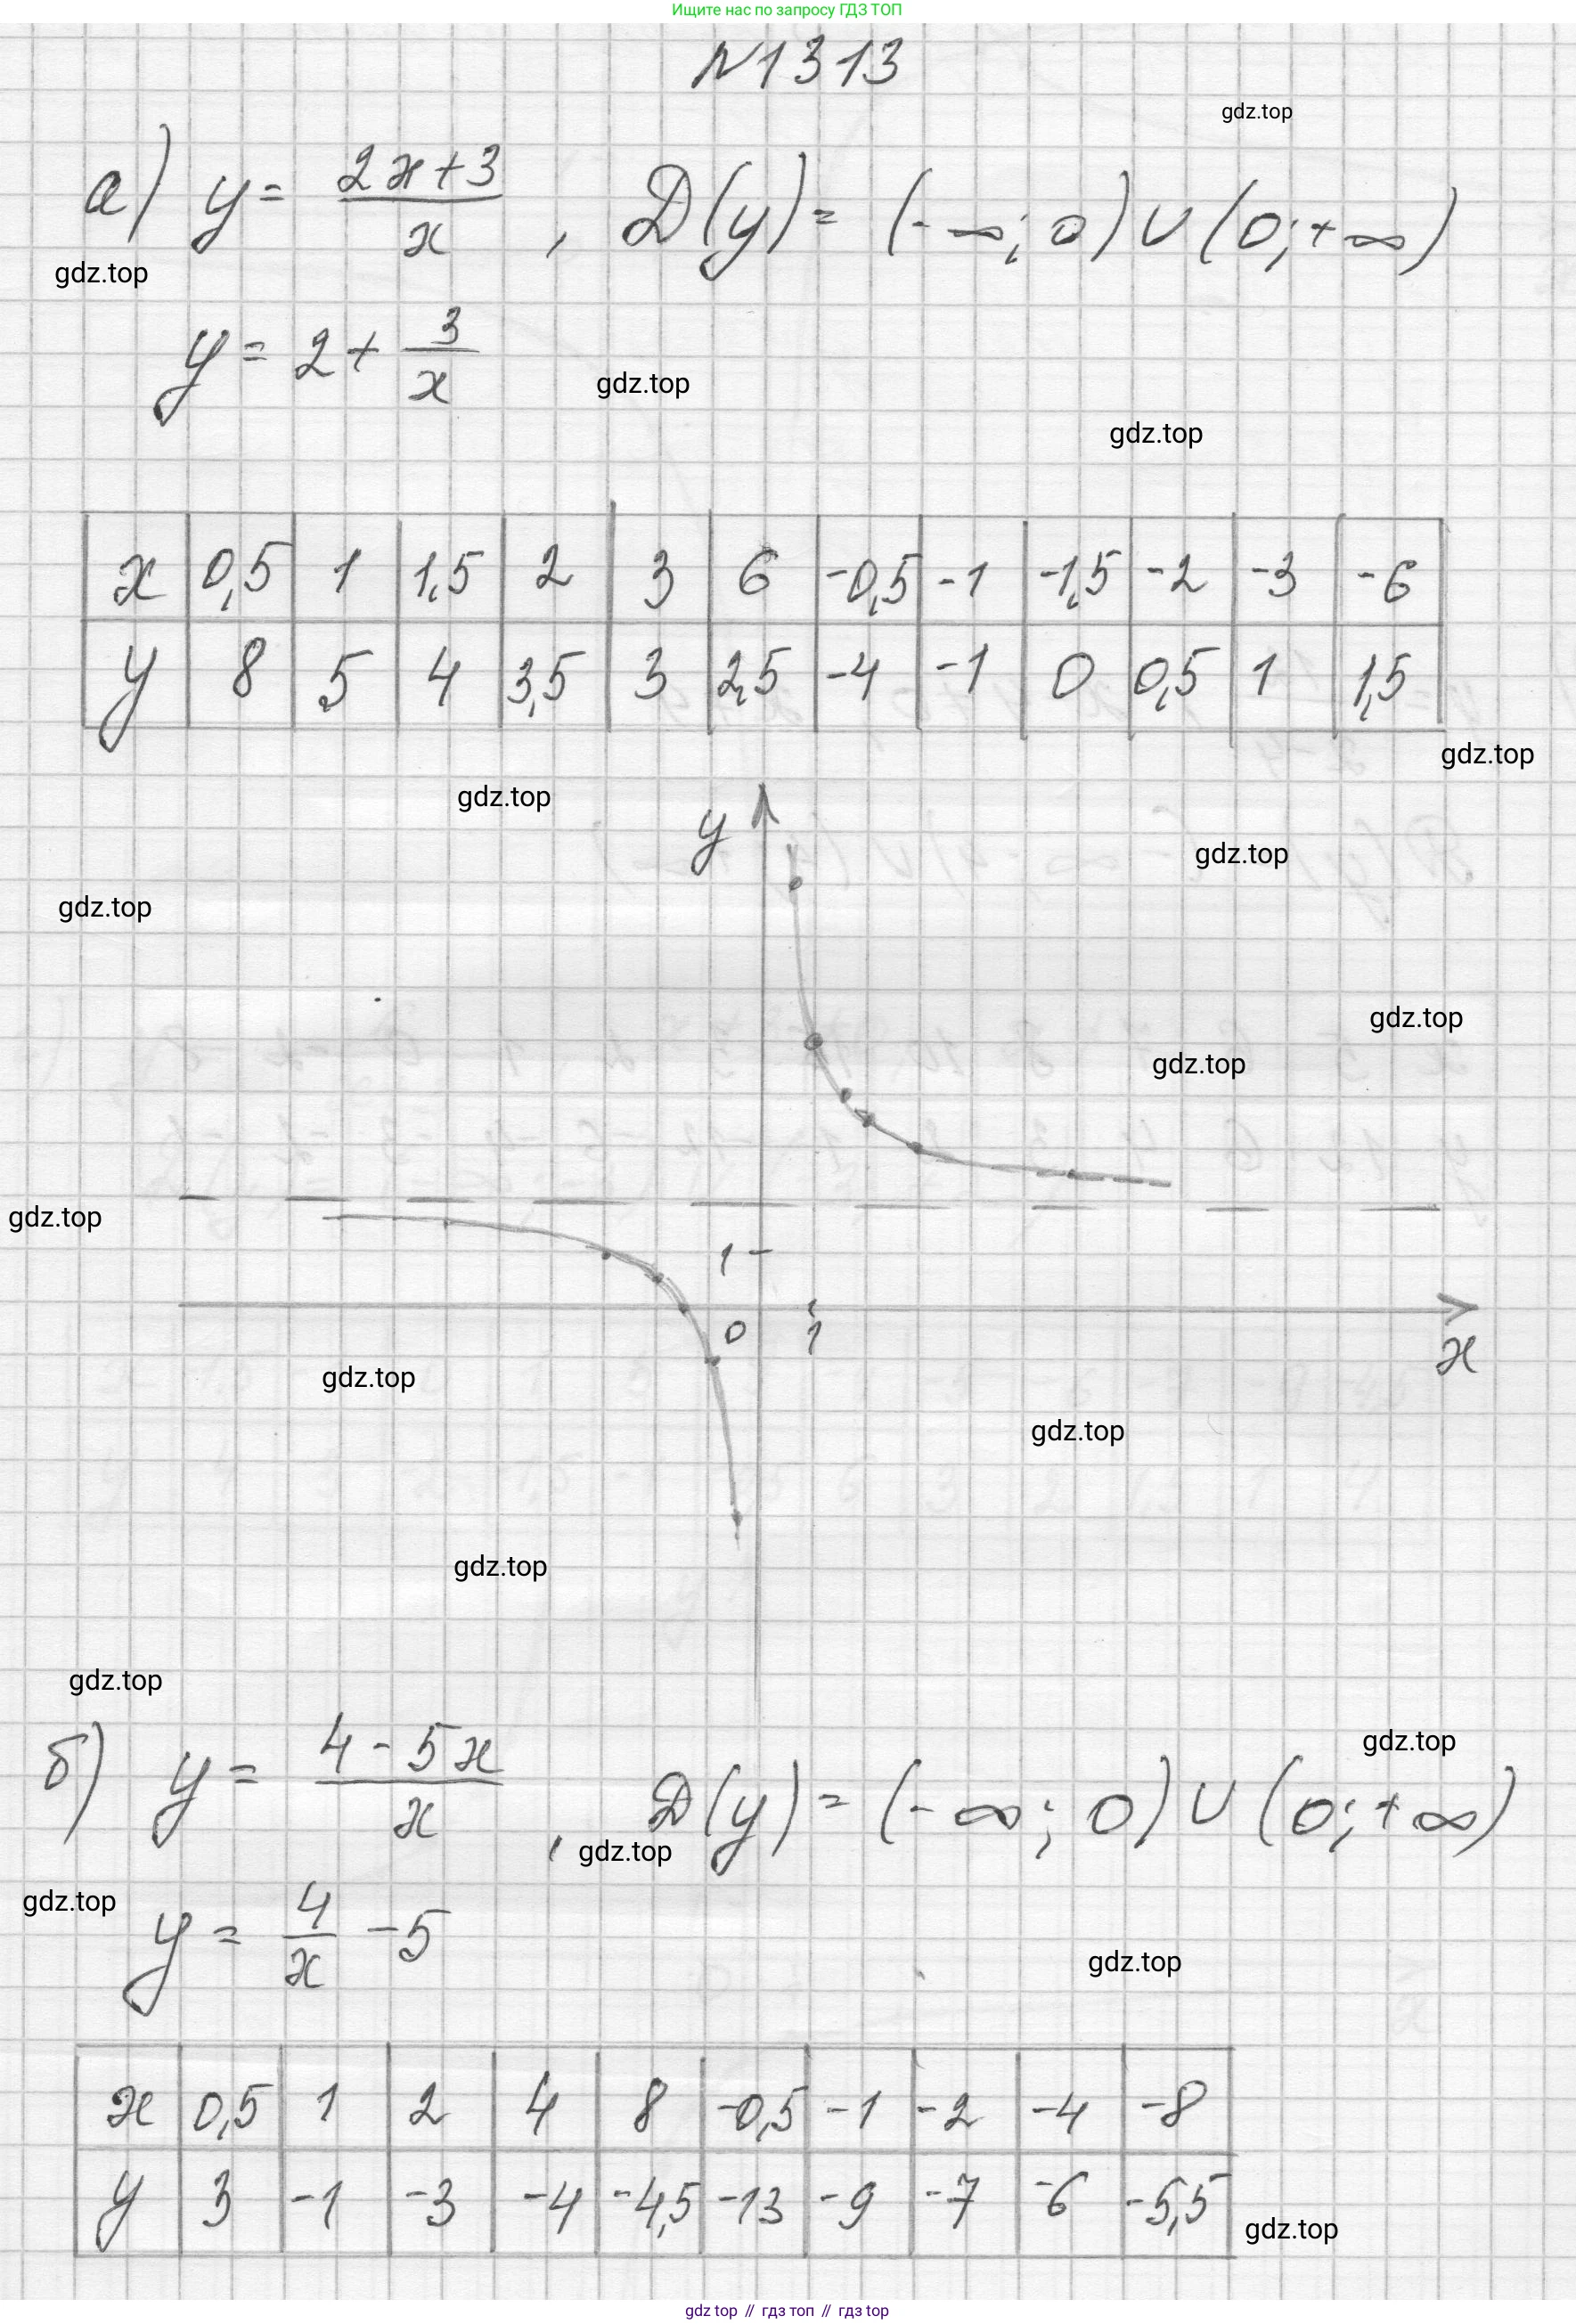 Ищите нас по запросу ГДЗ ТОП
N1313
gdz.top
а) y = (2x+3)/x , D(y) = (-∞; 0) ∪ (0; +∞)
gdz.top
y = 2 + 3/x
gdz.top
gdz.top
x 0,5 1 1,5 2 3 6 -0,5 -1 -1,5 -2 -3 -6
y 8 5 4 3,5 3 2,5 -4 -1 0 0,5 1 1,5
gdz.top
gdz.top
y
gdz.top
gdz.top
gdz.top
gdz.top
gdz.top
1
0 1
x
gdz.top
gdz.top
gdz.top
gdz.top
б) y = (4-5x)/x , D(y) = (-∞; 0) ∪ (0; +∞)
gdz.top
gdz.top
gdz.top
y = 4/x - 5
gdz.top
x 0,5 1 2 4 8 -0,5 -1 -2 -4 -8
y 3 -1 -3 -4 -4,5 -13 -9 -7 -6 -5,5
gdz.top
gdz top // гдз топ // гдз top